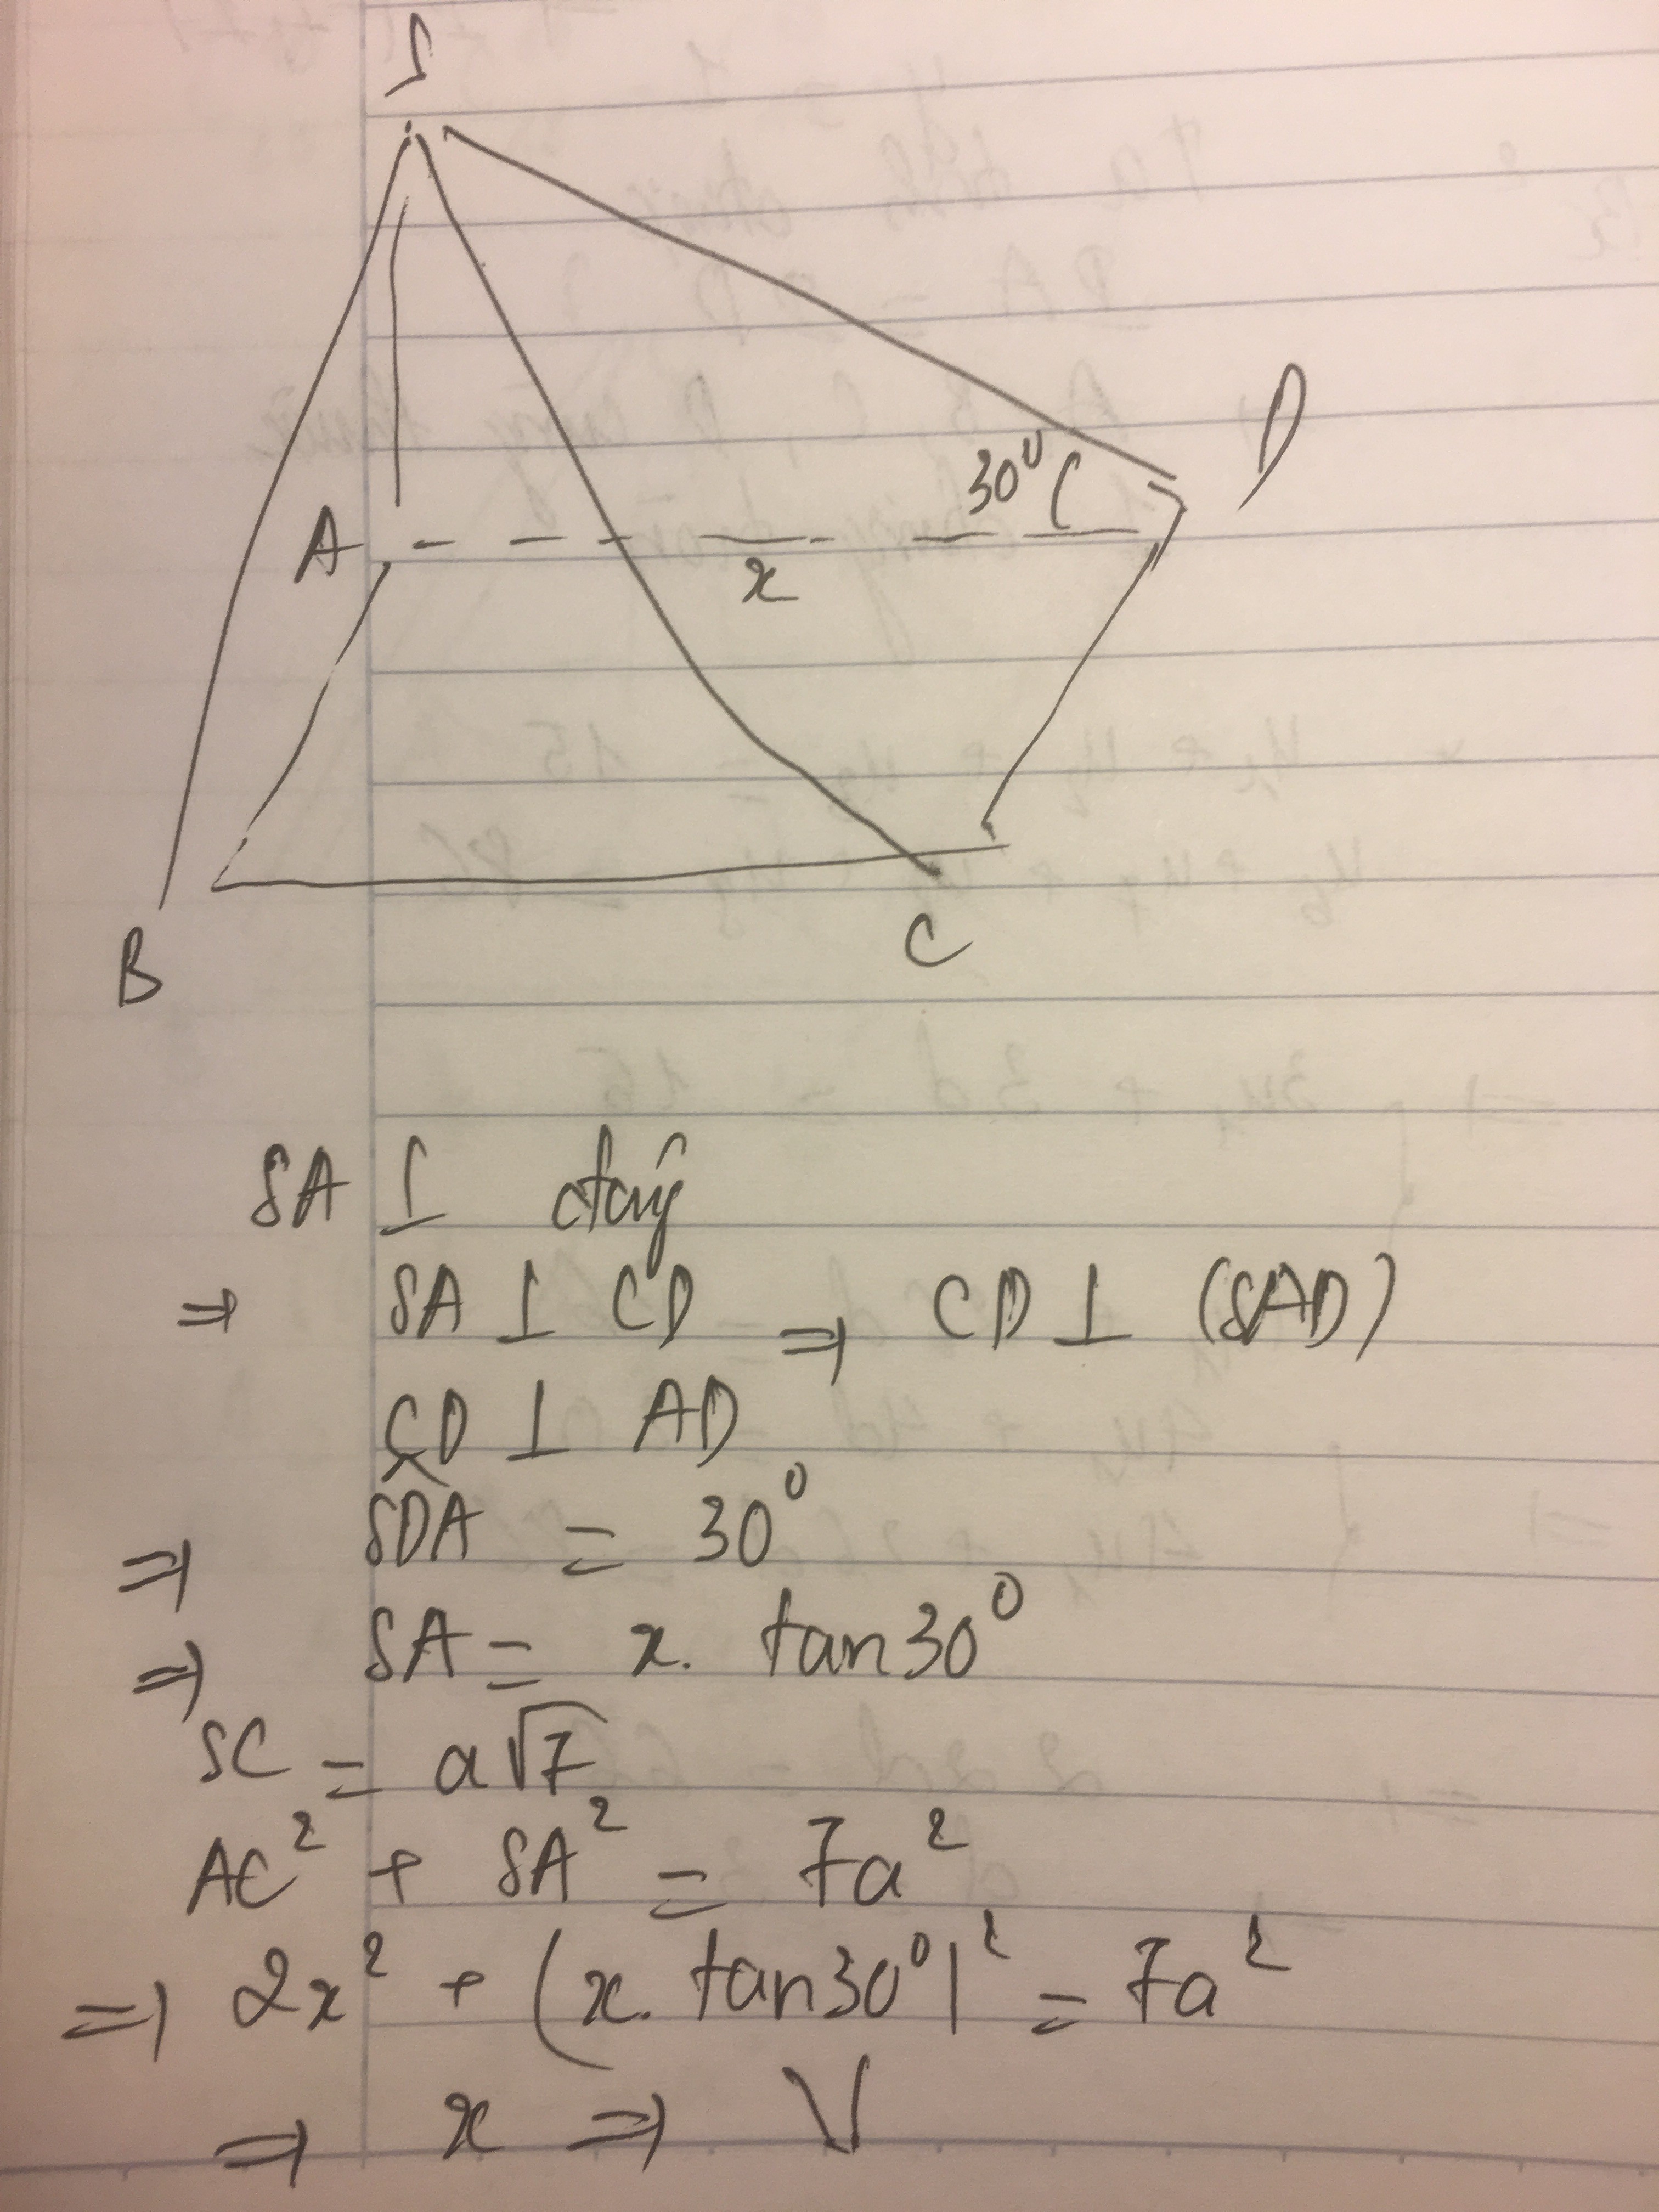 S
D
30°
A
x
B
C
SA ⊥ đáy
⇒ SA ⊥ CD ⇒ CD ⊥ (SAD)
CD ⊥ AD
⇒ SDA = 30°
⇒ SA = x. tan30°
SC = a√7
AC² + SA² = 7a²
⇒ 2x² + (x. tan30°)² = 7a²
⇒ x ⇒ V